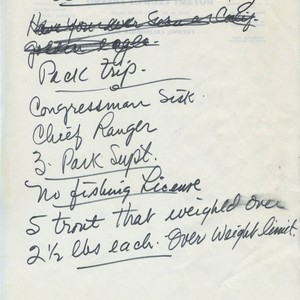 Have you ever seen a Calif.
golden eagle.
Pack trip.
Congressman Sisk.
Chief Ranger
3. Park Supt.
No fishing License
5 trout that weighed over
2½ lbs each. Over weight limit.